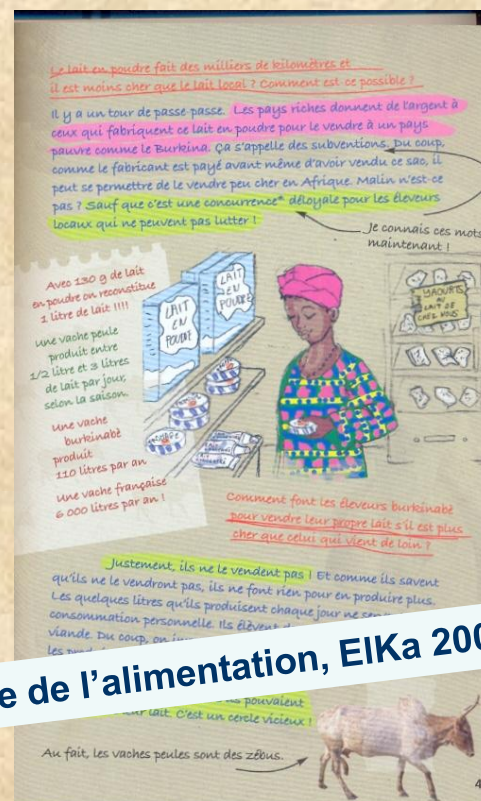 Le lait en poudre fait des milliers de kilomètres et
il est moins cher que le lait local ? Comment est-ce possible ?
Il y a un tour de passe-passe. Les pays riches donnent de l'argent à
ceux qui fabriquent ce lait en poudre pour le vendre à un pays
pauvre comme le Burkina. Ça s'appelle des subventions. Du coup,
comme le fabricant est payé avant même d'avoir vendu ce sac, il
peut se permettre de le vendre peu cher en Afrique. Malin n'est-ce
pas ? Sauf que c'est une concurrence* déloyale pour les éleveurs
locaux qui ne peuvent pas lutter !
Je connais ces mots
maintenant !
Avec 130 g de lait
en poudre on reconstitue
1 litre de lait !!!!
Une vache peule
produit entre
1/2 litre et 3 litres
de lait par jour,
selon la saison.
Une vache
burkinabè
produit
110 litres par an
Une vache française
6 000 litres par an !
LAIT
EN
POUDRE
LAIT
EN
POUDRE
YAOURTS
AU
LAIT DE
CHEZ NOUS
Comment font les éleveurs burkinabè
pour vendre leur propre lait s'il est plus
cher que celui qui vient de loin ?
Justement, ils ne le vendent pas ! Et comme ils savent
qu'ils ne le vendront pas, ils ne font rien pour en produire plus.
Les quelques litres qu'ils produisent chaque jour ne
consommation personnelle. Ils élèvent
viande. Du coup, on
e de l'alimentation, ElKa 200
pouvaient
lait. C'est un cercle vicieux !
Au fait, les vaches peules sont des zébus.
4